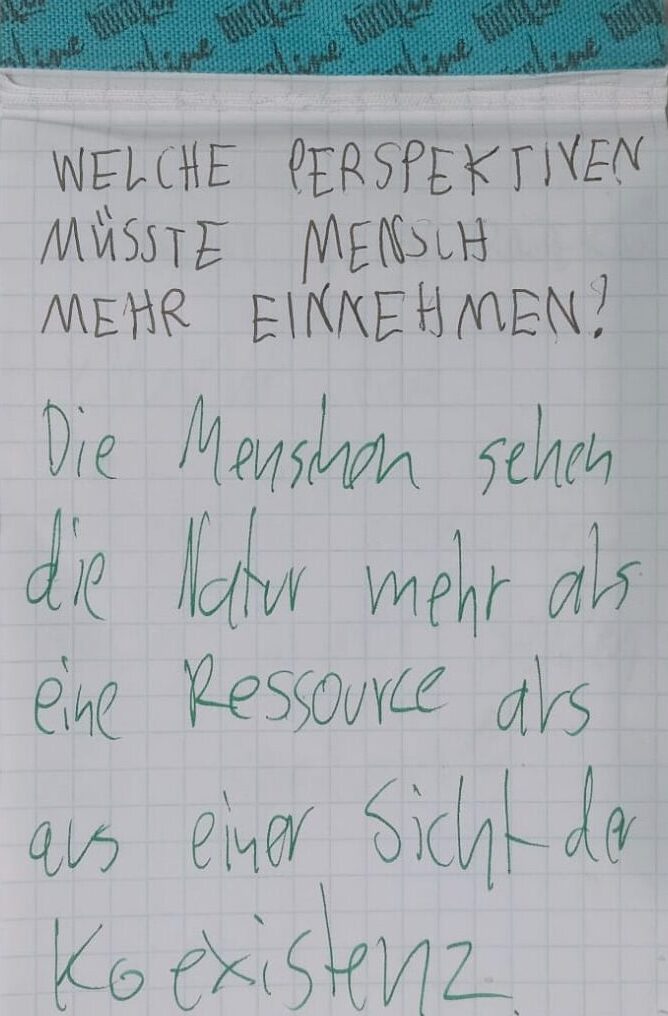 WELCHE PERSPEKTIVEN
MÜSSTE MENSCH
MEHR EINNEHMEN?
Die Menschen sehen
die Natur mehr als
eine Ressource als
aus einer Sicht der
Koexistenz